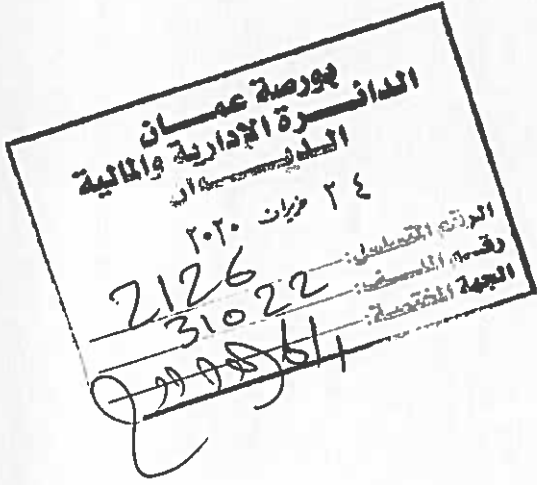 بورصة عمـــان
الدائـــرة الإدارية والمالية
الديـــوان
٢٤ حزيران ٢٠٢٠
الرقم المتسلسل: 2126
رقـــم الملـــف: 31022
الجهة المختصة: